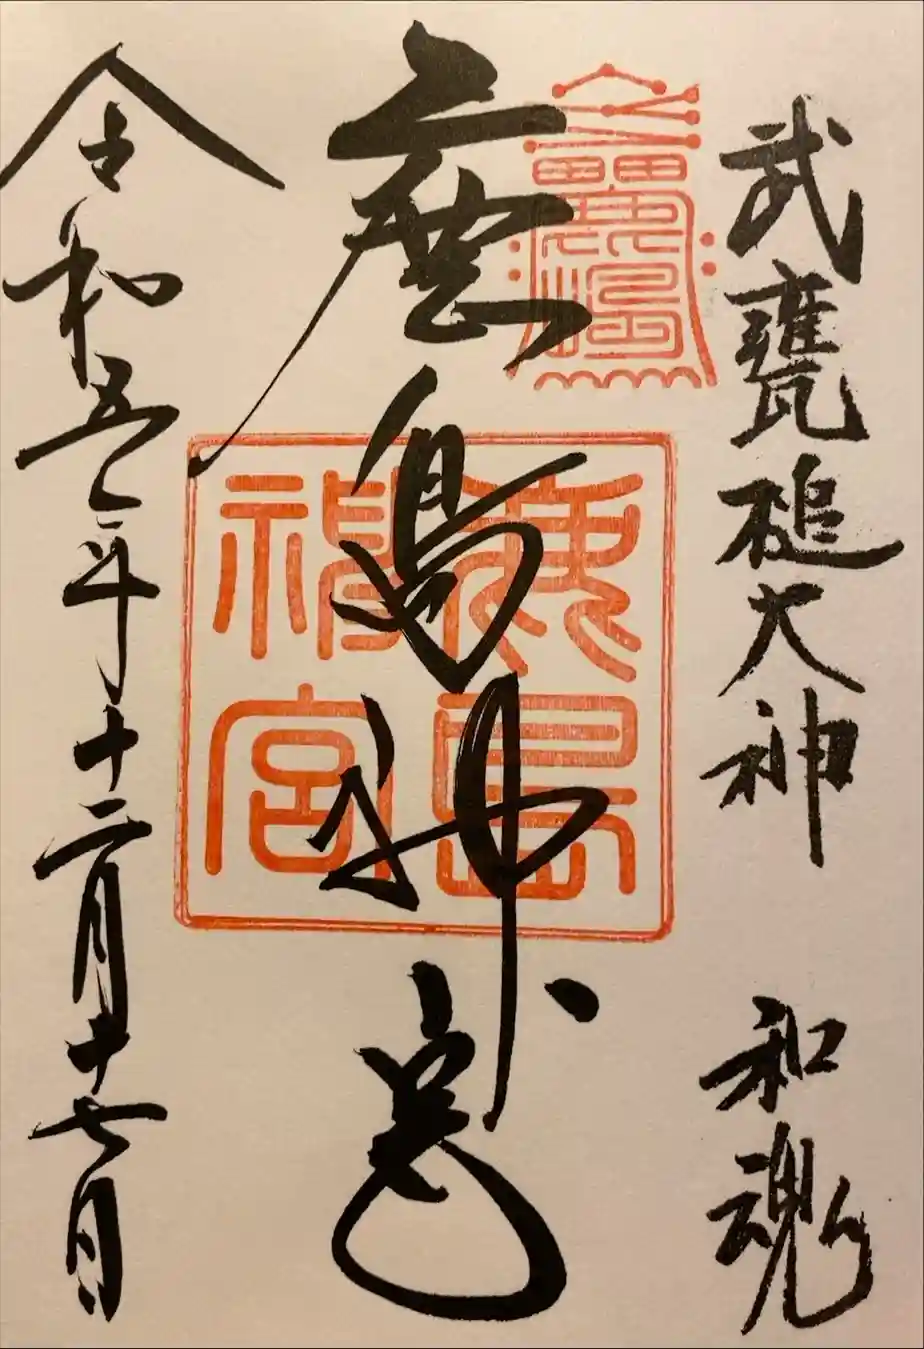 武甕槌大神 和魂
鹿島神宮
鹿島神宮
令和五年十二月十七日